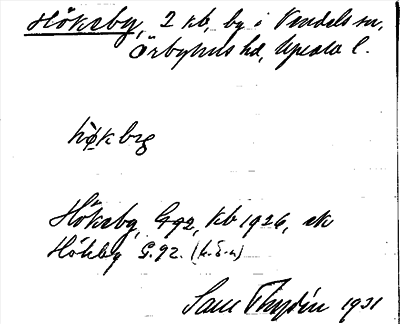 Höksby, 2 kb, by i Vendels sn,
Örbyhus hd, Upsala l.
hø̀kbg
Höksby Gqz, kb 1926, ek
Hökby G.qz. (h.ö.n)
Sam Thydén 1931